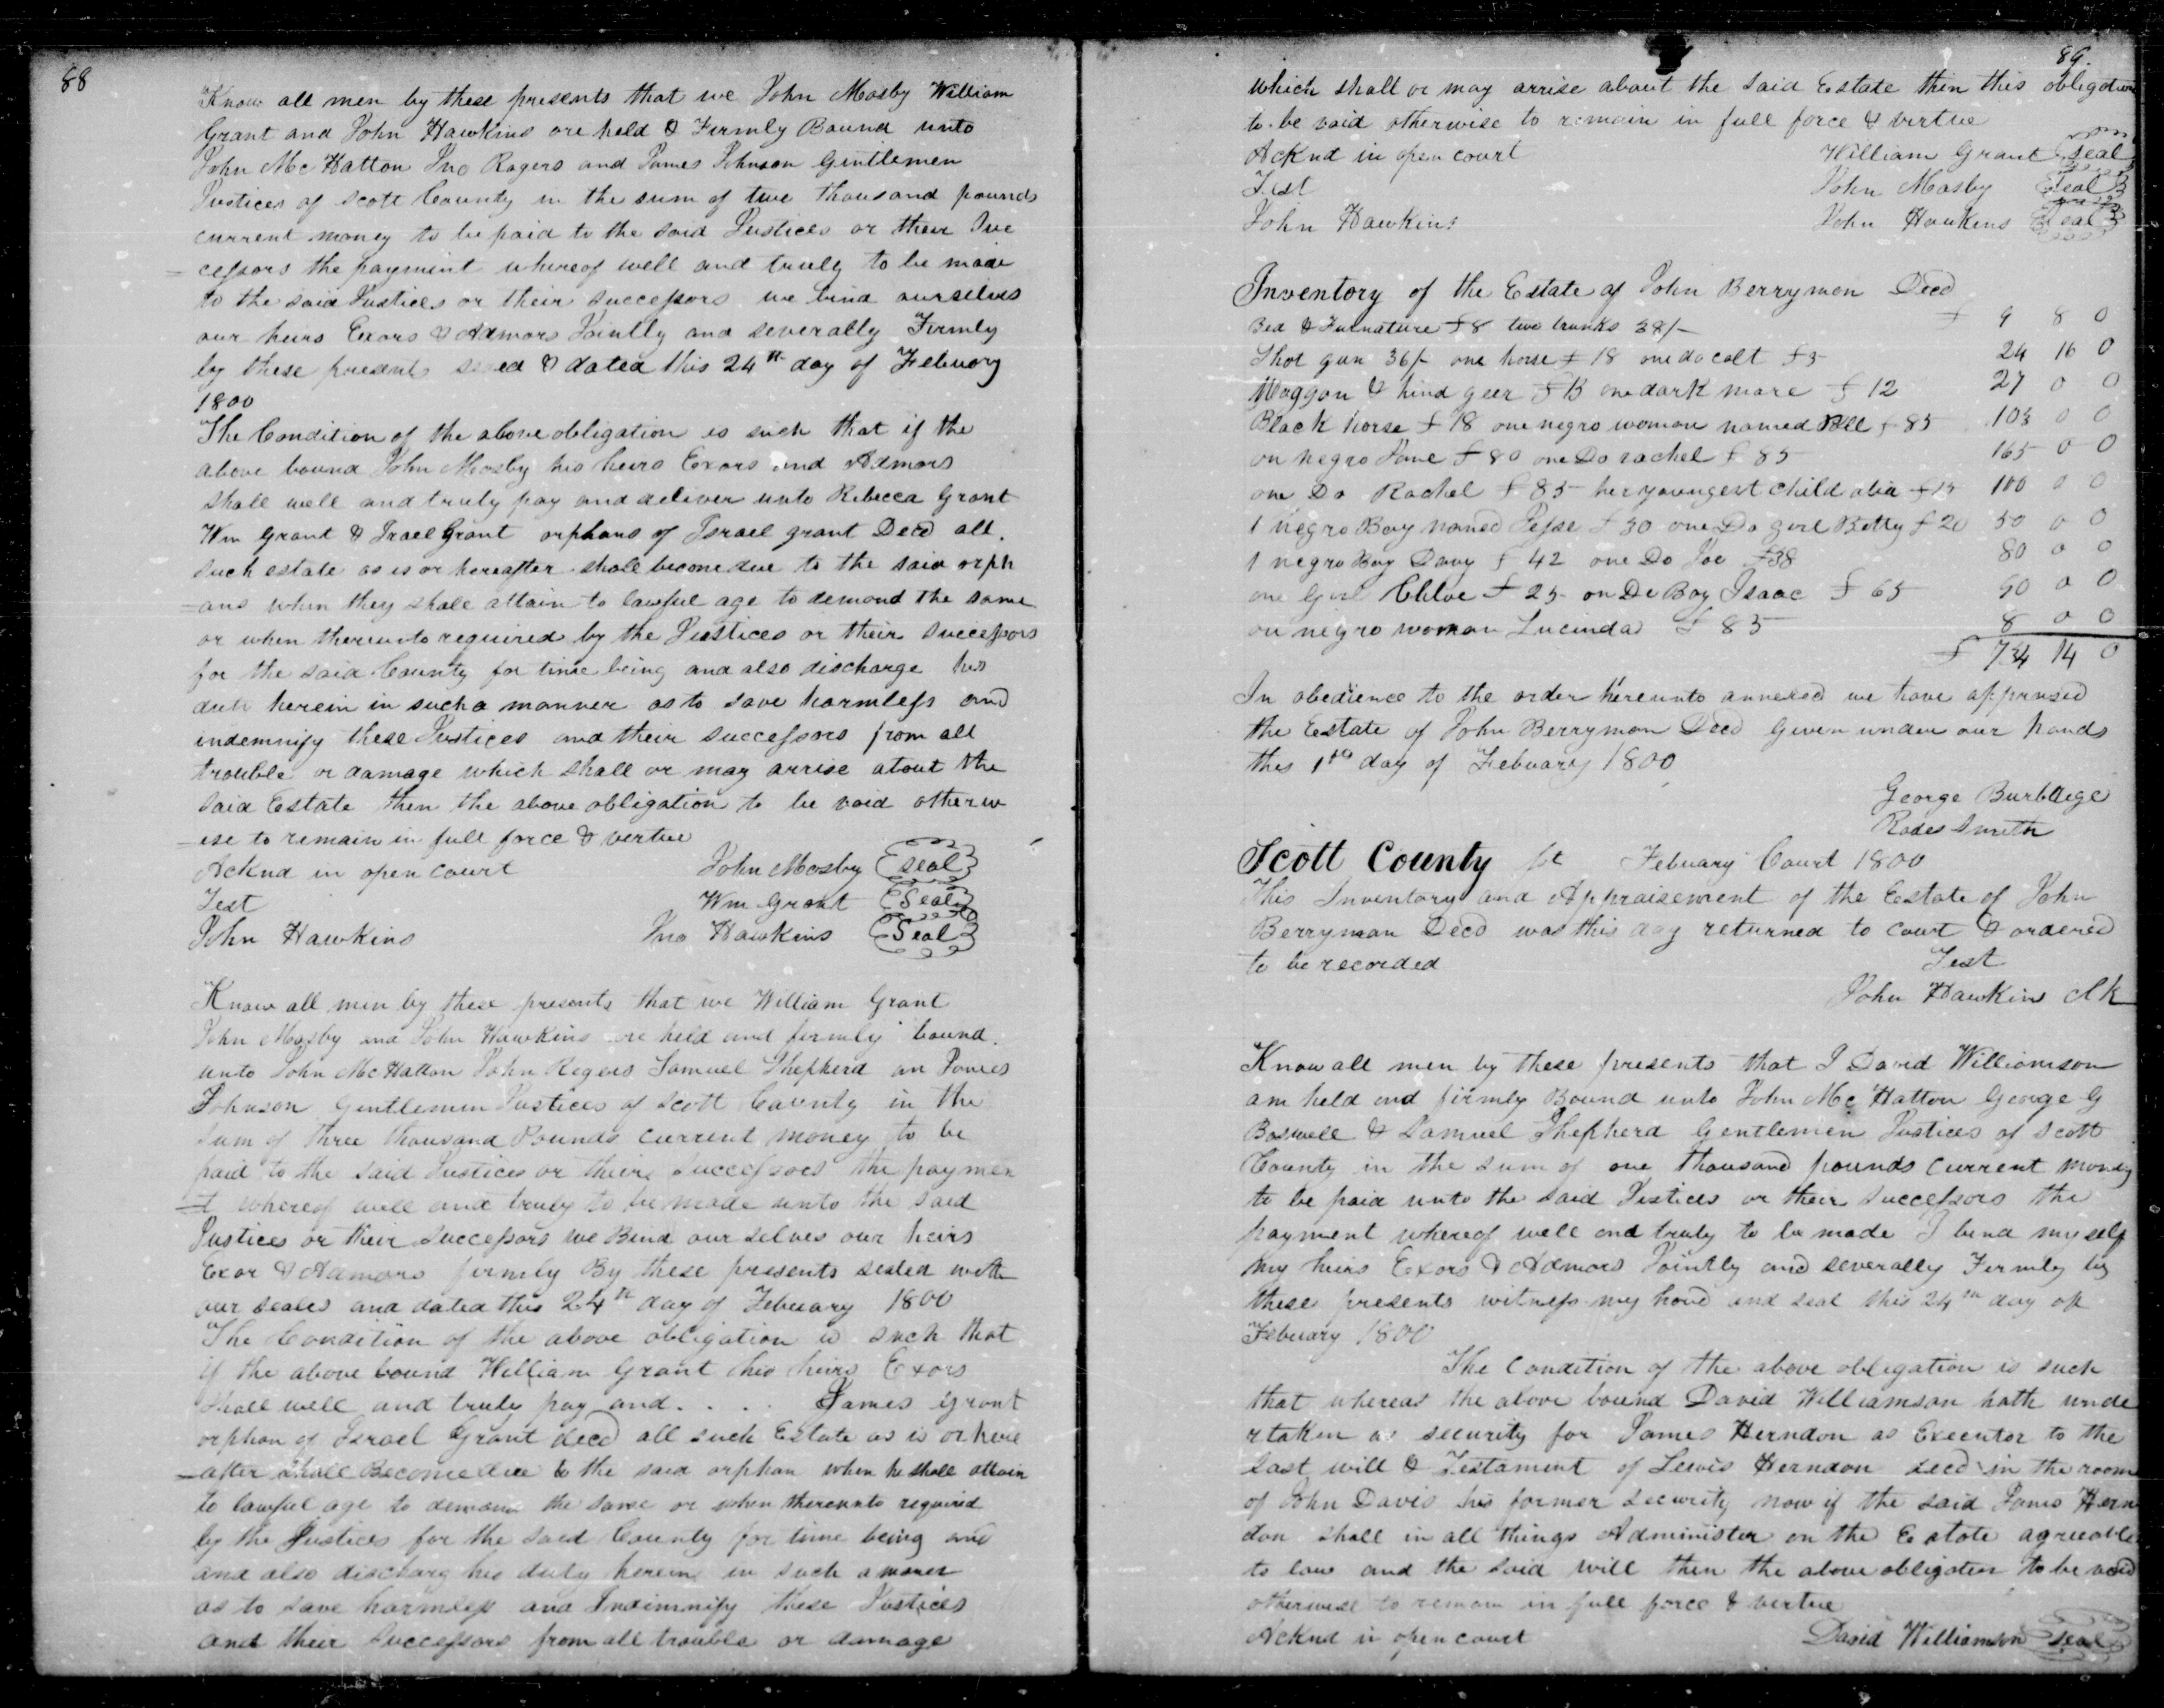 88
Know all men by these presents that we John Mosby William
Grant and John Hawkins are held & Firmly Bound unto
John Mc Hatton Jno Rogers and James Johnson Gentlemen
Justices of Scott County in the sum of two thousand pounds
current money to be paid to the said Justices or their Suc
=cessors the payment whereof well and truly to be made
to the said Justices or their successors we bind ourselves
our heirs Exors & Admors Jointly and severally Firmly
by these presents sealed & dated this 24th day of Febuary
1800
The Condition of the above obligation is such that if the
above bound John Mosby his heirs Exors and Admors
shall well and truly pay and deliver unto Rebecca Grant
Wm Grant & Israel Grant orphans of Israel grant Decd all
such estate as is or hereafter shall become due to the said orph
=ans when they shall attain to lawful age to demand the same
or when thereunto required by the Justices or their successors
for the said County for time being and also discharge his
duti herein in such a manner as to save harmless and
indemnify these Justices and their successors from all
trouble or damage which shall or may arrise about the
said Estate then the above obligation to be void otherw
=ise to remain in full force & vertue
Acknd in open court John Mosby Seal
Test Wm Grant Seal
John Hawkins Jno Hawkins Seal
Know all men by these presents that we William Grant
John Mosby and John Hawkins are held and firmly bound
unto John Mc Hatton John Rogers Samuel Shepherd an James
Johnson Gentlemen Justices of Scott County in the
sum of three thousand Pounds current money to be
paid to the said Justices or their successors the paymen
=t whereof well and truly to be made unto the said
Justices or their successors we Bind our selves our heirs
Exor & Admors firmly By these presents sealed with
our seales and dated this 24th day of Febuary 1800
The Condition of the above obligation is such that
if the above bound William Grant his heirs Exors
shall well and truly pay and . . . . James Grant
orphan of Israel Grant decd all such Estate as is or here
=after shall Become due to the said orphan when he shall attain
to lawful age to demand the same or when thereunto required
by the Justices for the said County for time being and
and also discharg his duty herein in such a maner
as to save harmless and Indimnify these Justices
and their successors from all trouble or damage
89.
which shall or may arrise about the said Estate then this obligation
to be void otherwise to remain in full force & virtue
Acknd in open court William Grant Seal
Test John Mosby Seal
John Hawkins John Hawkins Seal
Inventory of the Estate of John Berrymon Decd
Bed & Furnature £8 two trunks 28/- £ 9 8 0
Shot gun 36/- one horse £18 one do colt £5 24 16 0
Waggon & hind geer £15 one dark mare £12 27 0 0
Black horse £18 one negro woman named Nell £85 103 0 0
on negro Jane £80 one Do rachel £85 165 0 0
one Do Rachel £85 her youngest child £15 100 0 0
1 negro Boy named Jesse £30 one Do girl Betty £20 50 0 0
1 negro Boy Davy £42 one Do Joe £38 80 0 0
one Girl Chloe £25 on Do Boy Isaac £65 90 0 0
on negro woman Lucinda £85 8 0 0
£ 734 14 0
In obedience to the order hereunto annexed we have apprased
the Estate of John Berrymon Decd Given under our hands
this day of Febuary 1800
George Burbdege
Rodes Smith
Scott County Sct Febuary Court 1800
This Inventory and Appraisement of the Estate of John
Berryman Decd was this day returned to court & ordered
to be recorded Test
John Hawkins Clk
Know all men by these presents that I David Williamson
am held and firmly Bound unto John Mc Hatton George G
Boswell & Samuel Shepherd Gentlemen Justices of Scott
County in the sum of one thousand pounds current money
to be paid unto the said Justices or their successors the
payment whereof well and truly to be made I bind my self
my heirs Exors & Admors Jointly and severally Firmly by
these presents witness my hand and seal this 24th day of
Febuary 1800
The Condition of the above obligation is such
that whereas the above bound David Williamson hath unde
rtaken as security for James Herndon as Executor to the
Last will & Testament of Lewis Herndon decd in the room
of John Davis his former security now if the said James Hern
don shall in all things Administer on the Estate agreeable
to law and the said will then the above obligation to be void
otherwise to remain in full force & vertue
Acknd in open court David Williamson Seal